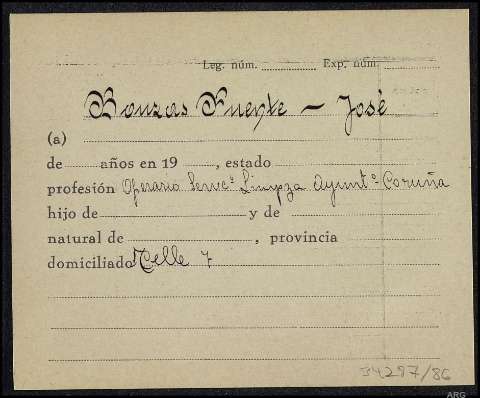 Leg. núm. Exp. núm.
Bouzas Fuente - José
(a)
de años en 19 , estado
profesión Operario Servcº Limpza Ayuntº Coruña
hijo de y de
natural de , provincia
domiciliado Telle 7
34297/86
ARG